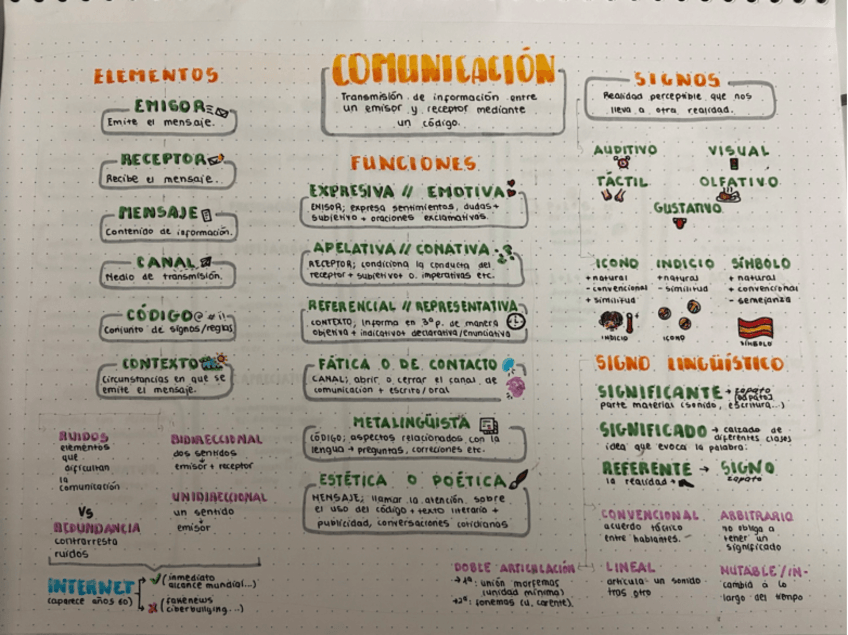 COMUNICACIÓN
Transmisión de información entre
un emisor y receptor mediante
un código.
ELEMENTOS
EMISOR
Emite el mensaje.
RECEPTOR
Recibe el mensaje.
MENSAJE
Contenido de información.
CANAL
Medio de transmisión.
CÓDIGO @ # ¡!
Conjunto de signos/reglas
CONTEXTO
Circunstancias en que se
emite el mensaje.
RUIDOS
elementos
que
dificultan
la
comunicación
VS
REDUNDANCIA
contrarresta
ruidos
BIDIRECCIONAL
dos sentidos
emisor + receptor
UNIDIRECCIONAL
un sentido
emisor
INTERNET
(aparece años 60)
(inmediato
alcance mundial...)
(fakenews
ciberbullying...)
FUNCIONES
EXPRESIVA // EMOTIVA
EMISOR; expresa sentimientos, dudas +
subjetivo + oraciones exclamativas.
APELATIVA // CONATIVA
RECEPTOR; condiciona la conducta del
receptor + subjetivo + o. imperativas etc.
REFERENCIAL // REPRESENTATIVA
CONTEXTO; informa en 3ª p. de manera
objetiva + indicativo + declarativa/enunciativa
FÁTICA O DE CONTACTO
CANAL; abrir o cerrar el canal de
comunicación + escrito/oral
METALINGÜISTA
CÓDIGO; aspectos relacionados con la
lengua → preguntas, correciones etc.
ESTÉTICA O POÉTICA
MENSAJE; llamar la atención sobre
el uso del código + texto literario +
publicidad, conversaciones cotidianas
SIGNOS
Realidad perceptible que nos
lleva a otra realidad.
AUDITIVO
VISUAL
TÁCTIL
OLFATIVO
GUSTATIVO
ICONO
+ natural
- convencional
+ similitud
INDICIO
+ natural
- similitud
SÍMBOLO
+ natural
+ convencional
- semejanza
INDICIO
ICONO
SÍMBOLO
SIGNO LINGÜÍSTICO
SIGNIFICANTE → zapato
parte material (sonido, escritura...)
SIGNIFICADO → calzado de
diferentes clases
idea que evoca la palabra.
REFERENTE → SIGNO
la realidad →
zapato
CONVENCIONAL
acuerdo tácito
entre hablantes.
ARBITRARIO
no obliga a
tener un
significado
LINEAL
articula un sonido
tras otro
MUTABLE/IN-
cambia a lo
largo del tiempo
DOBLE ARTICULACIÓN
→ 1ª: unión morfemas
(unidad mínima)
→ 2ª: fonemas